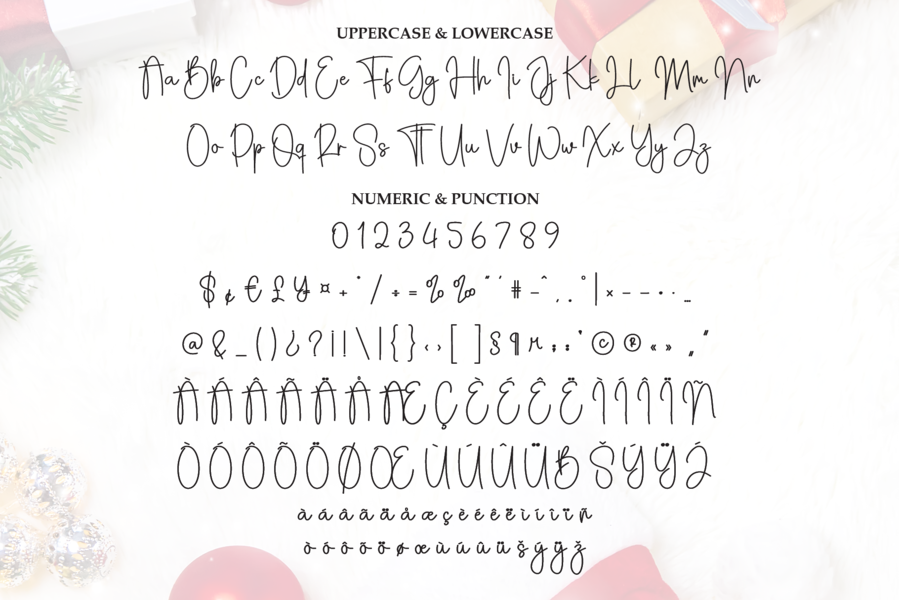 UPPERCASE & LOWERCASE
Aa Bb Cc Dd Ee Ff Gg Hh Ii Jj Kk Ll Mm Nn
Oo Pp Qq Rr Ss Tt Uu Vv Ww Xx Yy Zz
NUMERIC & PUNCTION
0123456789
$ ¢ € £ ¥ ¤ + * / ÷ = % ‰ " ' # - ^ , . ° | × – — · . …
@ & _ ( ) ¿ ? ¡ ! \ | { } ‹ › [ ] § ¶ ; : ' © ® « » „ ”
À Á Â Ã Ä Å Æ Ç È É Ê Ë Ì Í Î Ï Ñ
Ò Ó Ô Õ Ö Ø Œ Ù Ú Û Ü ß Š Ý Ÿ Ž
à á â ã ä å æ ç è é ê ë ì í î ï ñ
ò ó ô õ ö ø œ ù ú û ü š ý ÿ ž